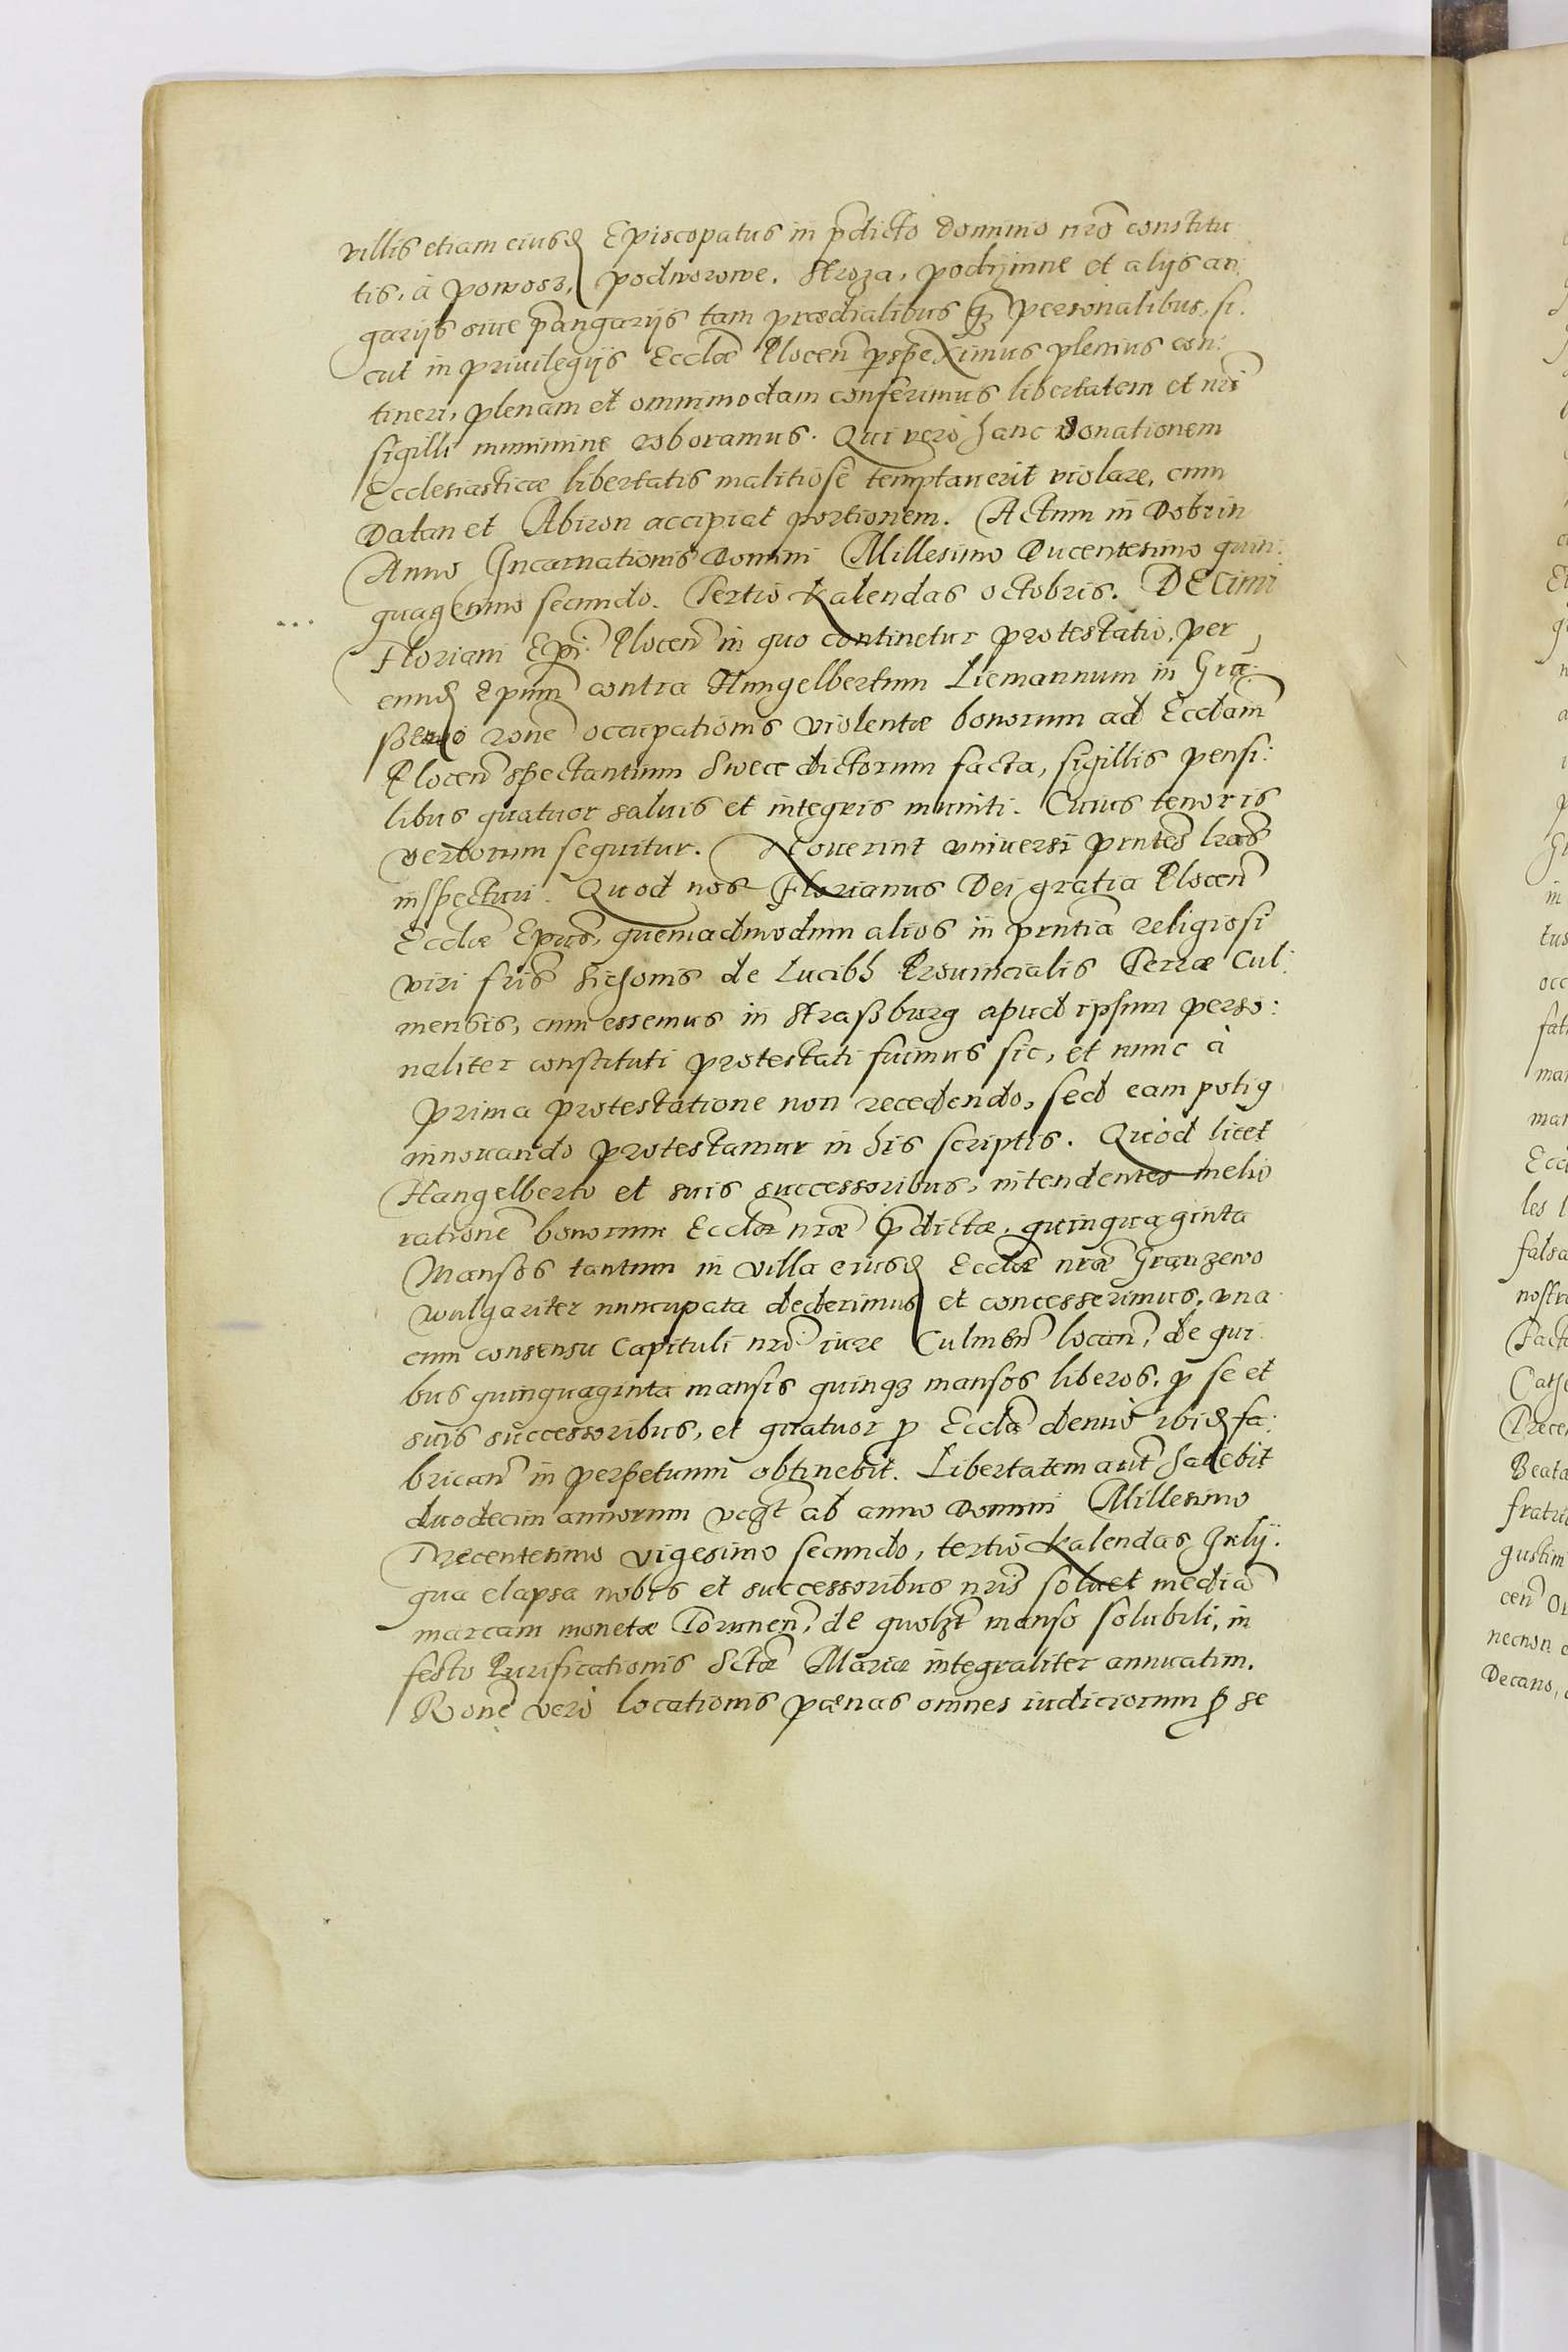 villis etiam eiusđ Episcopatus in p̄dicto Dominio nr̄o constitu
tis, à powosz, podworowe, Stroza, podÿmne et alijs an
garijs siue p̄angarijs tam prædialibus qz personalibus, si:
cut in priuilegijs Eccl̄æ Plocen̄ perspeximus plenius con:
tineri, plenam et omnimodam conferimus libertatem et nr̄i
sigilli munimine roboramus. Qui verò hanc Donationem
Ecclesiasticæ libertatis malitiosè temptauerit violare, cum
Datan et Abiron accipiat portionem. Actum in Dobrin
Anno Incarnationis Domini Millesimo Ducentesimo quin:
quagesimo secundo. Tertio Kalendas octobris. DEcimi
Floriani Ep̄i Plocen̄ in quo continetur protestatio, per
eund̄ Ep̄um contra Hungelbertum Liemannum in Gra:
ron̄e occupationis violentæ bonorum ad Eccl̄iam
Plocen̄ spectantium Swece dictorum facta, sigillis pensi:
libus quatuor saluis et integris muniti. Cuius tenor is
verborum sequitur. Nouerint vniuersi pn̄tes lr̄as
inspecturi. Quod nos Florianus Dei gratia Plocen̄
Eccl̄iæ Ep̄us, quemadmodum alios in pn̄tia religiosi
viri fr̄is Sichonis de Lucibh Prouincialis Terræ Cul:
mensis, cum essemus in Straßburg apud ipsum perso:
naliter constituti protestati fuimus sic, et nunc à
prima protestatione non recedendo, sed eam potiꝯ
innouando protestamur in his scriptis. Quòd licet
Hangelberto et suis successoribus, intendentes melio
ration̄e bonorum Eccl̄æ nr̄æ p̄dictæ, quinquaginta
Mansos tantum in villa eiusđ Eccl̄æ nr̄æ Granzewo
wulgariter nuncupata dederimus et concesserimus, vna
cum consensu Capituli nr̄i iure Culmen̄ locan̄, de qui
bus quinquaginta mansis quinqz mansos liberos, p se et
suis successoribus, et quatuor p Eccl̄a denuò ibiđ fa:
brican̄ in perpetuum obtinebit. Libertatem aut̄ habebit
duodecim annorum vcz̄t ab anno Domini Millesimo
Trecentesimo vigesimo secundo, tertio Kalendas Julij.
qua elapsa nobis et successoribus nr̄is soluet mediā
marcam monetæ Torunen̄, de quolz̄t manso solubili, in
festo Purificationis Sctæ Mariæ integraliter annuatim.
Ron̄e verò locationis pœnas omnes iudiciorum p se